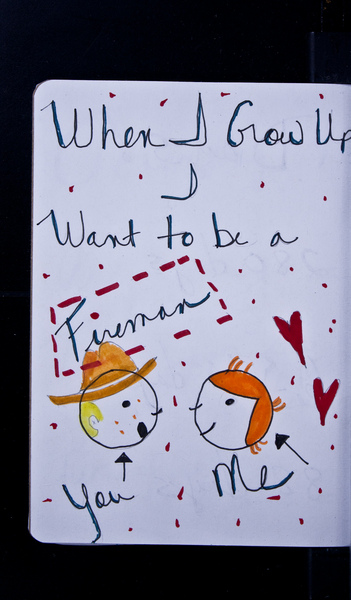 When I Grow Up
I
Want to be a
Fireman
You
Me